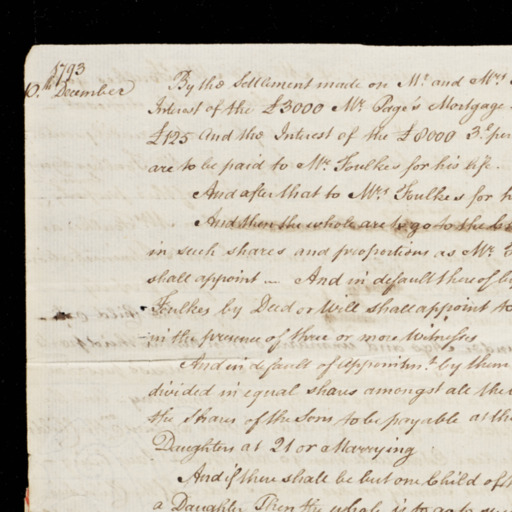 1793
10.th December
By the Settlement made on Mr. and Mrs
Interest of the £3000 Mr. Page's Mortgage
£125 And the Interest of the £8000 3 per
are to be paid to Mr. Foulkes for his life.
And after that to Mrs Foulkes for h
And then the whole are to go to the
in such shares and proportions as Mr.
shall appoint — And in default thereof by
Foulkes by Deed or Will shall appoint to
in the presence of three or more Witnesses
And in default of Appointmt. by them
divided in equal shares amongst all the
the Shares of the Sons to be payable at the
Daughters at 21 or Marrying
And if there shall be but one Child of
a Daughter Then the whole is to go to